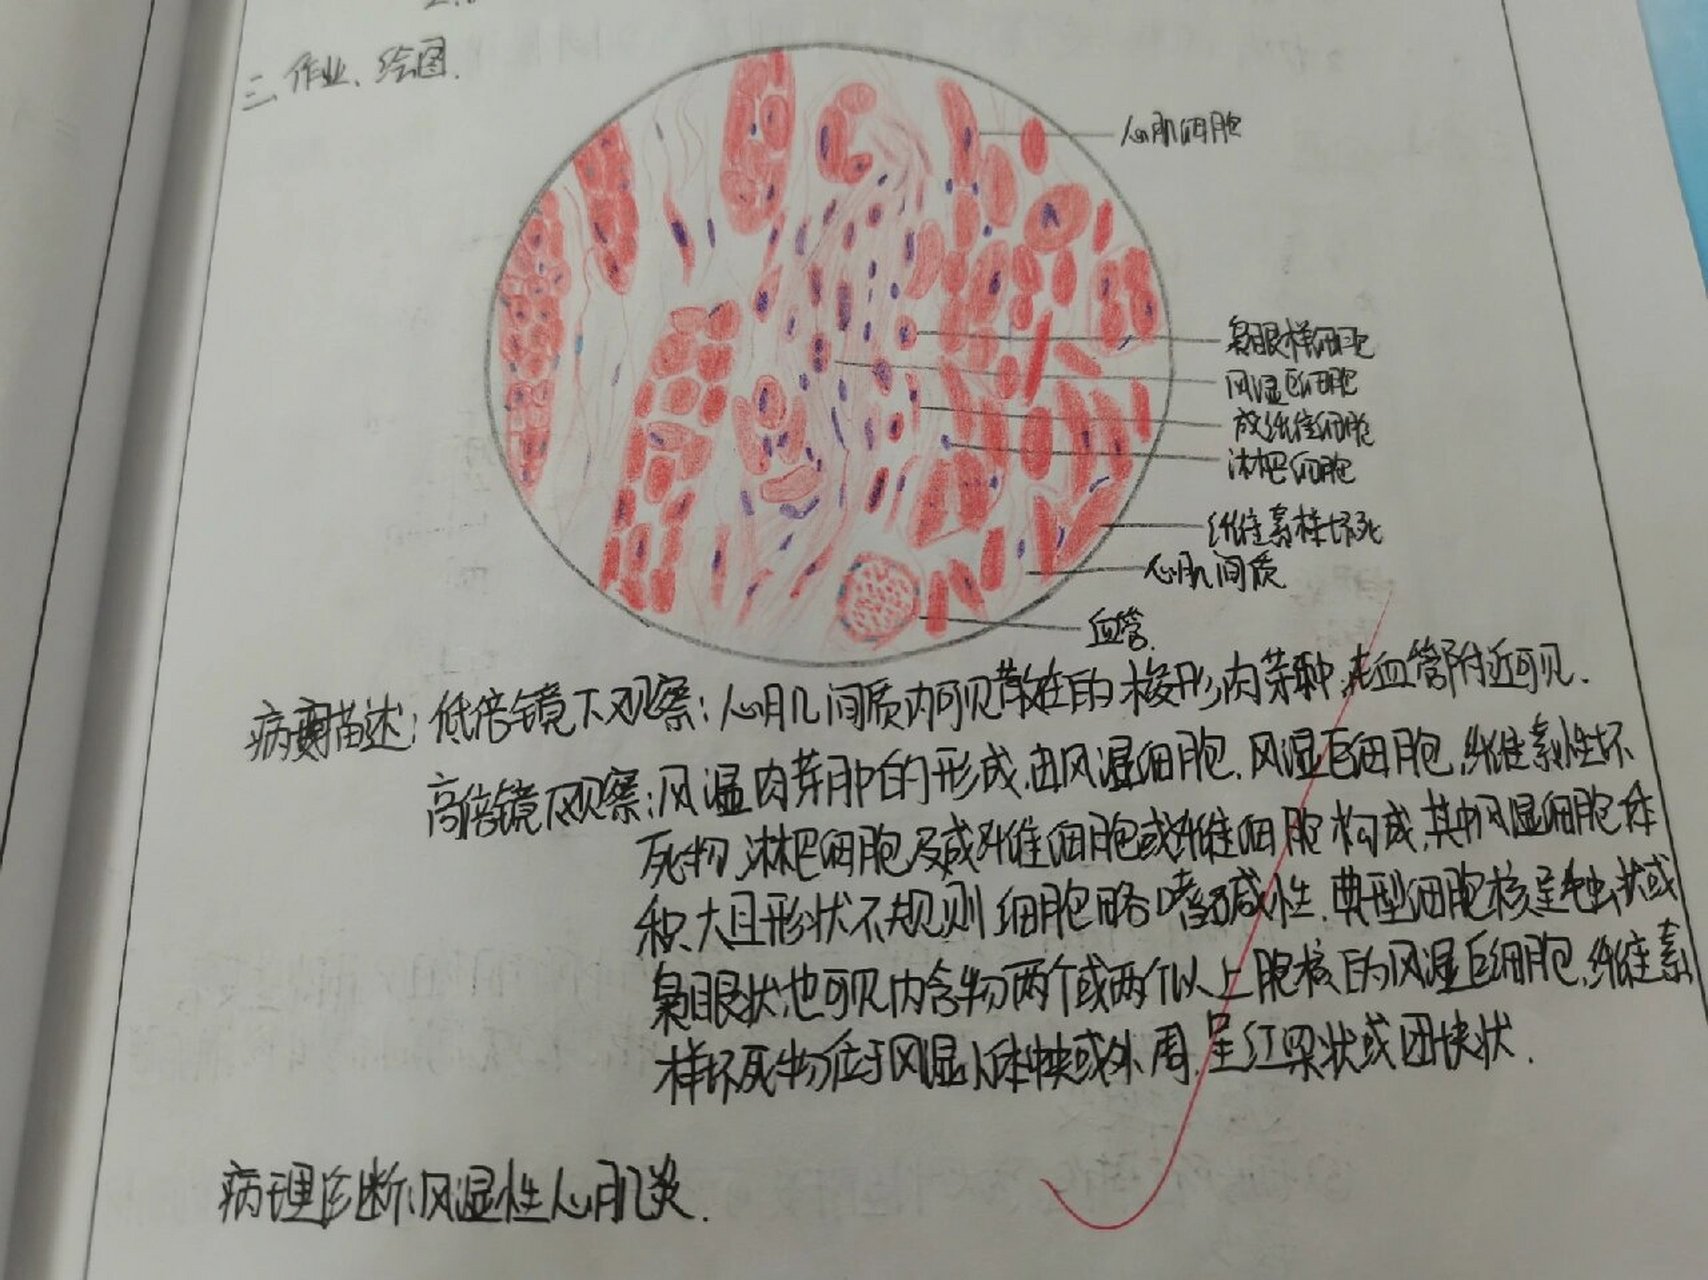 三、作业、绘图.
心肌细胞
枭眼样细胞
风湿巨细胞
成纤维细胞
淋巴细胞
纤维素样坏死
心肌间质
血管.
病变描述：低倍镜下观察：心肌间质内可见散在的梭形肉芽肿,在血管附近可见.
高倍镜下观察：风湿肉芽肿的形成,由风湿细胞.风湿巨细胞,纤维素性坏
死物,淋巴细胞及成纤维细胞或纤维细胞构成,其中风湿细胞体
积大且形状不规则,细胞略嗜碱性.典型细胞核呈毛虫状或
枭眼状,也可见内含物两个或两个以上胞核的风湿巨细胞,纤维素
样坏死物位于风湿小体中央或外周,呈红染状或团块状.
病理诊断：风湿性心肌炎.